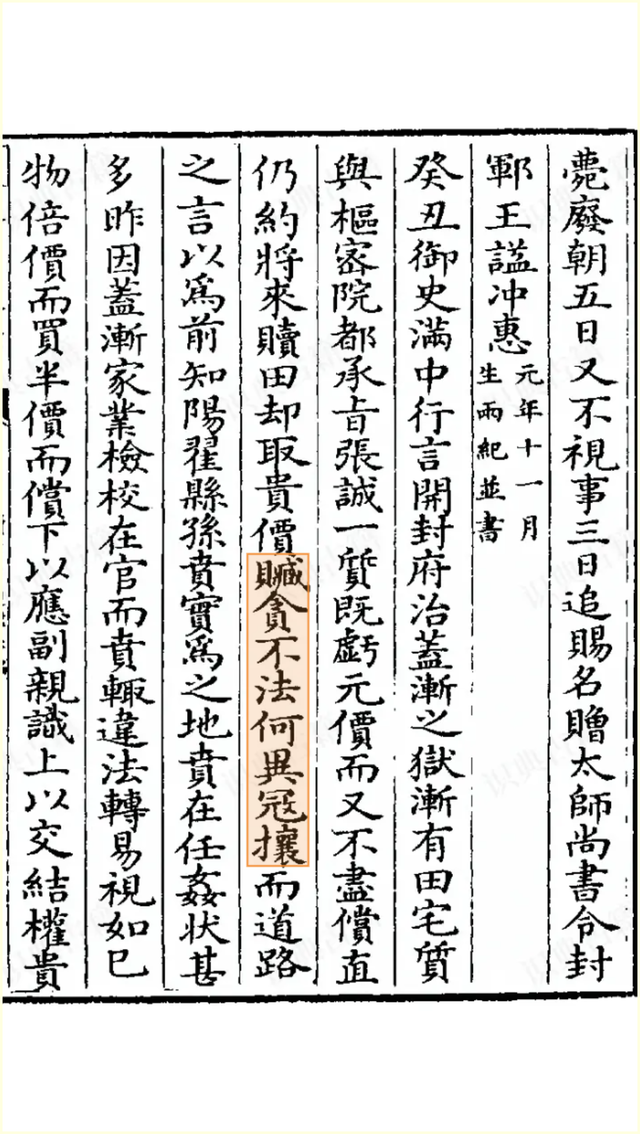 薨廢朝五日又不視事三日追賜名贈太師尚書令封
鄆王謚冲惠元年十一月
生兩紀並書
癸丑御史滿中行言開封府治蓋漸之獄漸有田宅質
與樞密院都承旨張誠一質既虧元價而又不盡償直
仍約將來贖田却取貴價贓貪不法何異冠攘而道路
之言以爲前知陽翟縣孫賁實爲之地賁在任姦狀甚
多昨因蓋漸家業檢校在官而賁輙違法轉易視如已
物倍價而買半價而償下以應副親識上以交結權貴